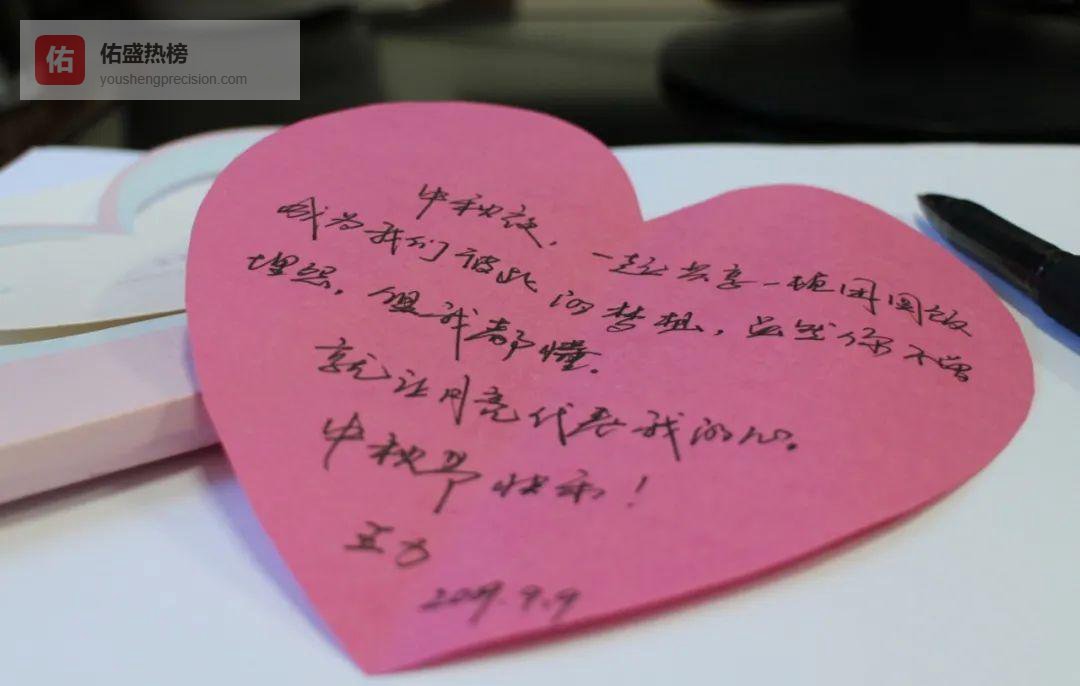 佑
佑盛热榜
youshengprecision.com
中秋夜，一起共享一轮团圆饭
成为我们彼此的梦想，虽然你不曾
埋怨，但我都懂。
就让月亮代表我的心。
中秋节快乐！
王力
2019.9.9